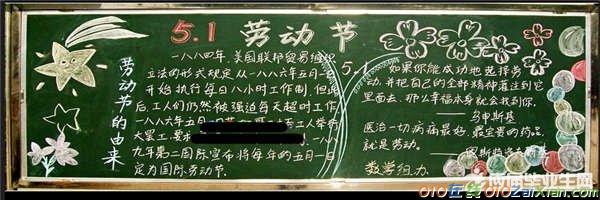 5.1 劳动节
劳动节的由来
一八八四年,美国联邦贸易组织
立法的形式规定从一八八六年五月一
开始执行每日八小时工作制,但此
后,工人们仍然被强迫每天超时工作
一八八六年五月一
大罢工,要求 一八八
九年第二国际宣布将每年的五月一日
定为国际劳动节.
5.1
如果你能成功地选择劳
动,并把自己的全部精神灌注到它
里面去,那么幸福本身就会找到你.
——乌申斯基
医治一切病痛最好,最宝贵的药品,
就是劳动。
数学组.力
010在线 010zaixian.com
应届毕业生网